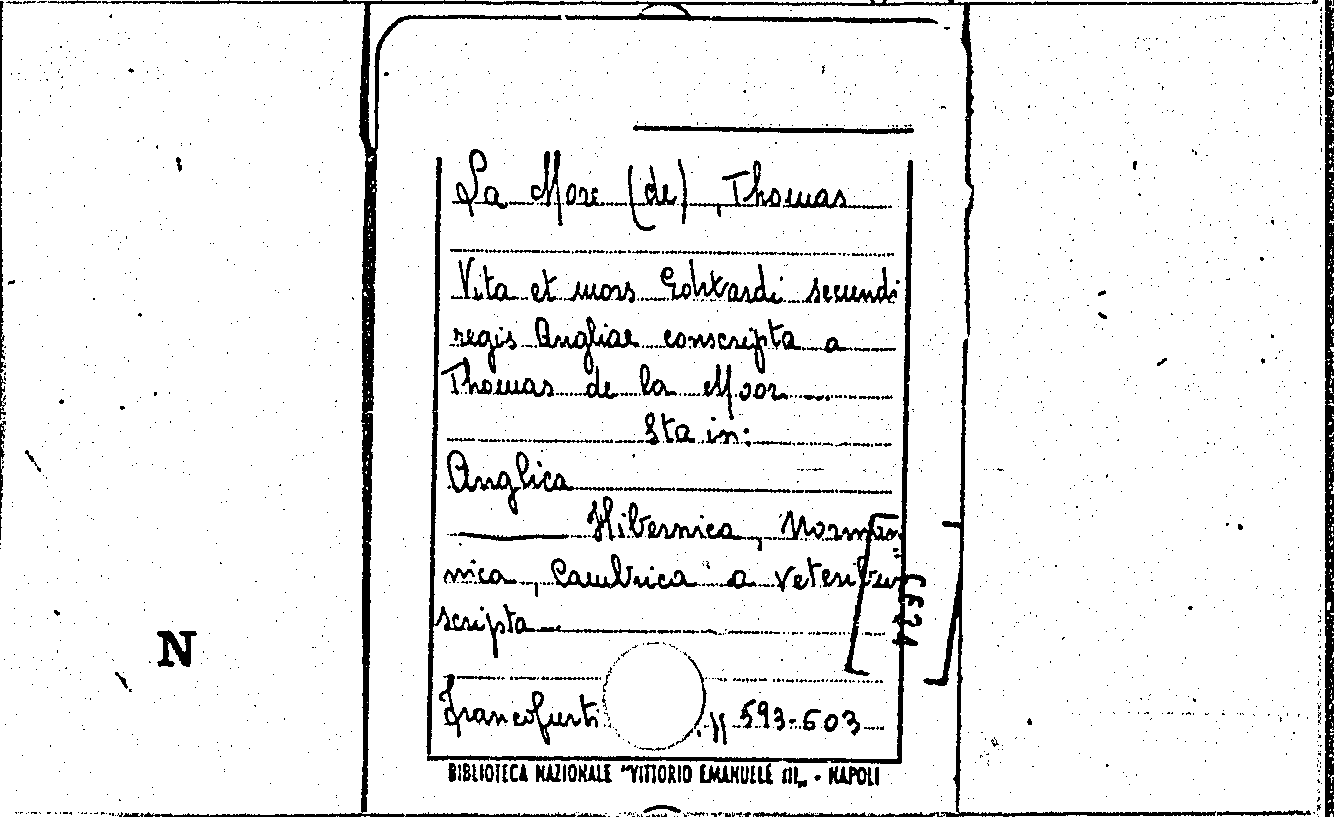 La More (de), Thomas
Vita et mors Edwardi secundi
regis Angliae conscripta a
Thomas de la Moor
Sta in:
Anglica
Hibernica, Norman
nica, Cambrica a veteribus
scripta
Francofurti 593-603
N
BIBLIOTECA NAZIONALE "VITTORIO EMANUELE III„ - NAPOLI